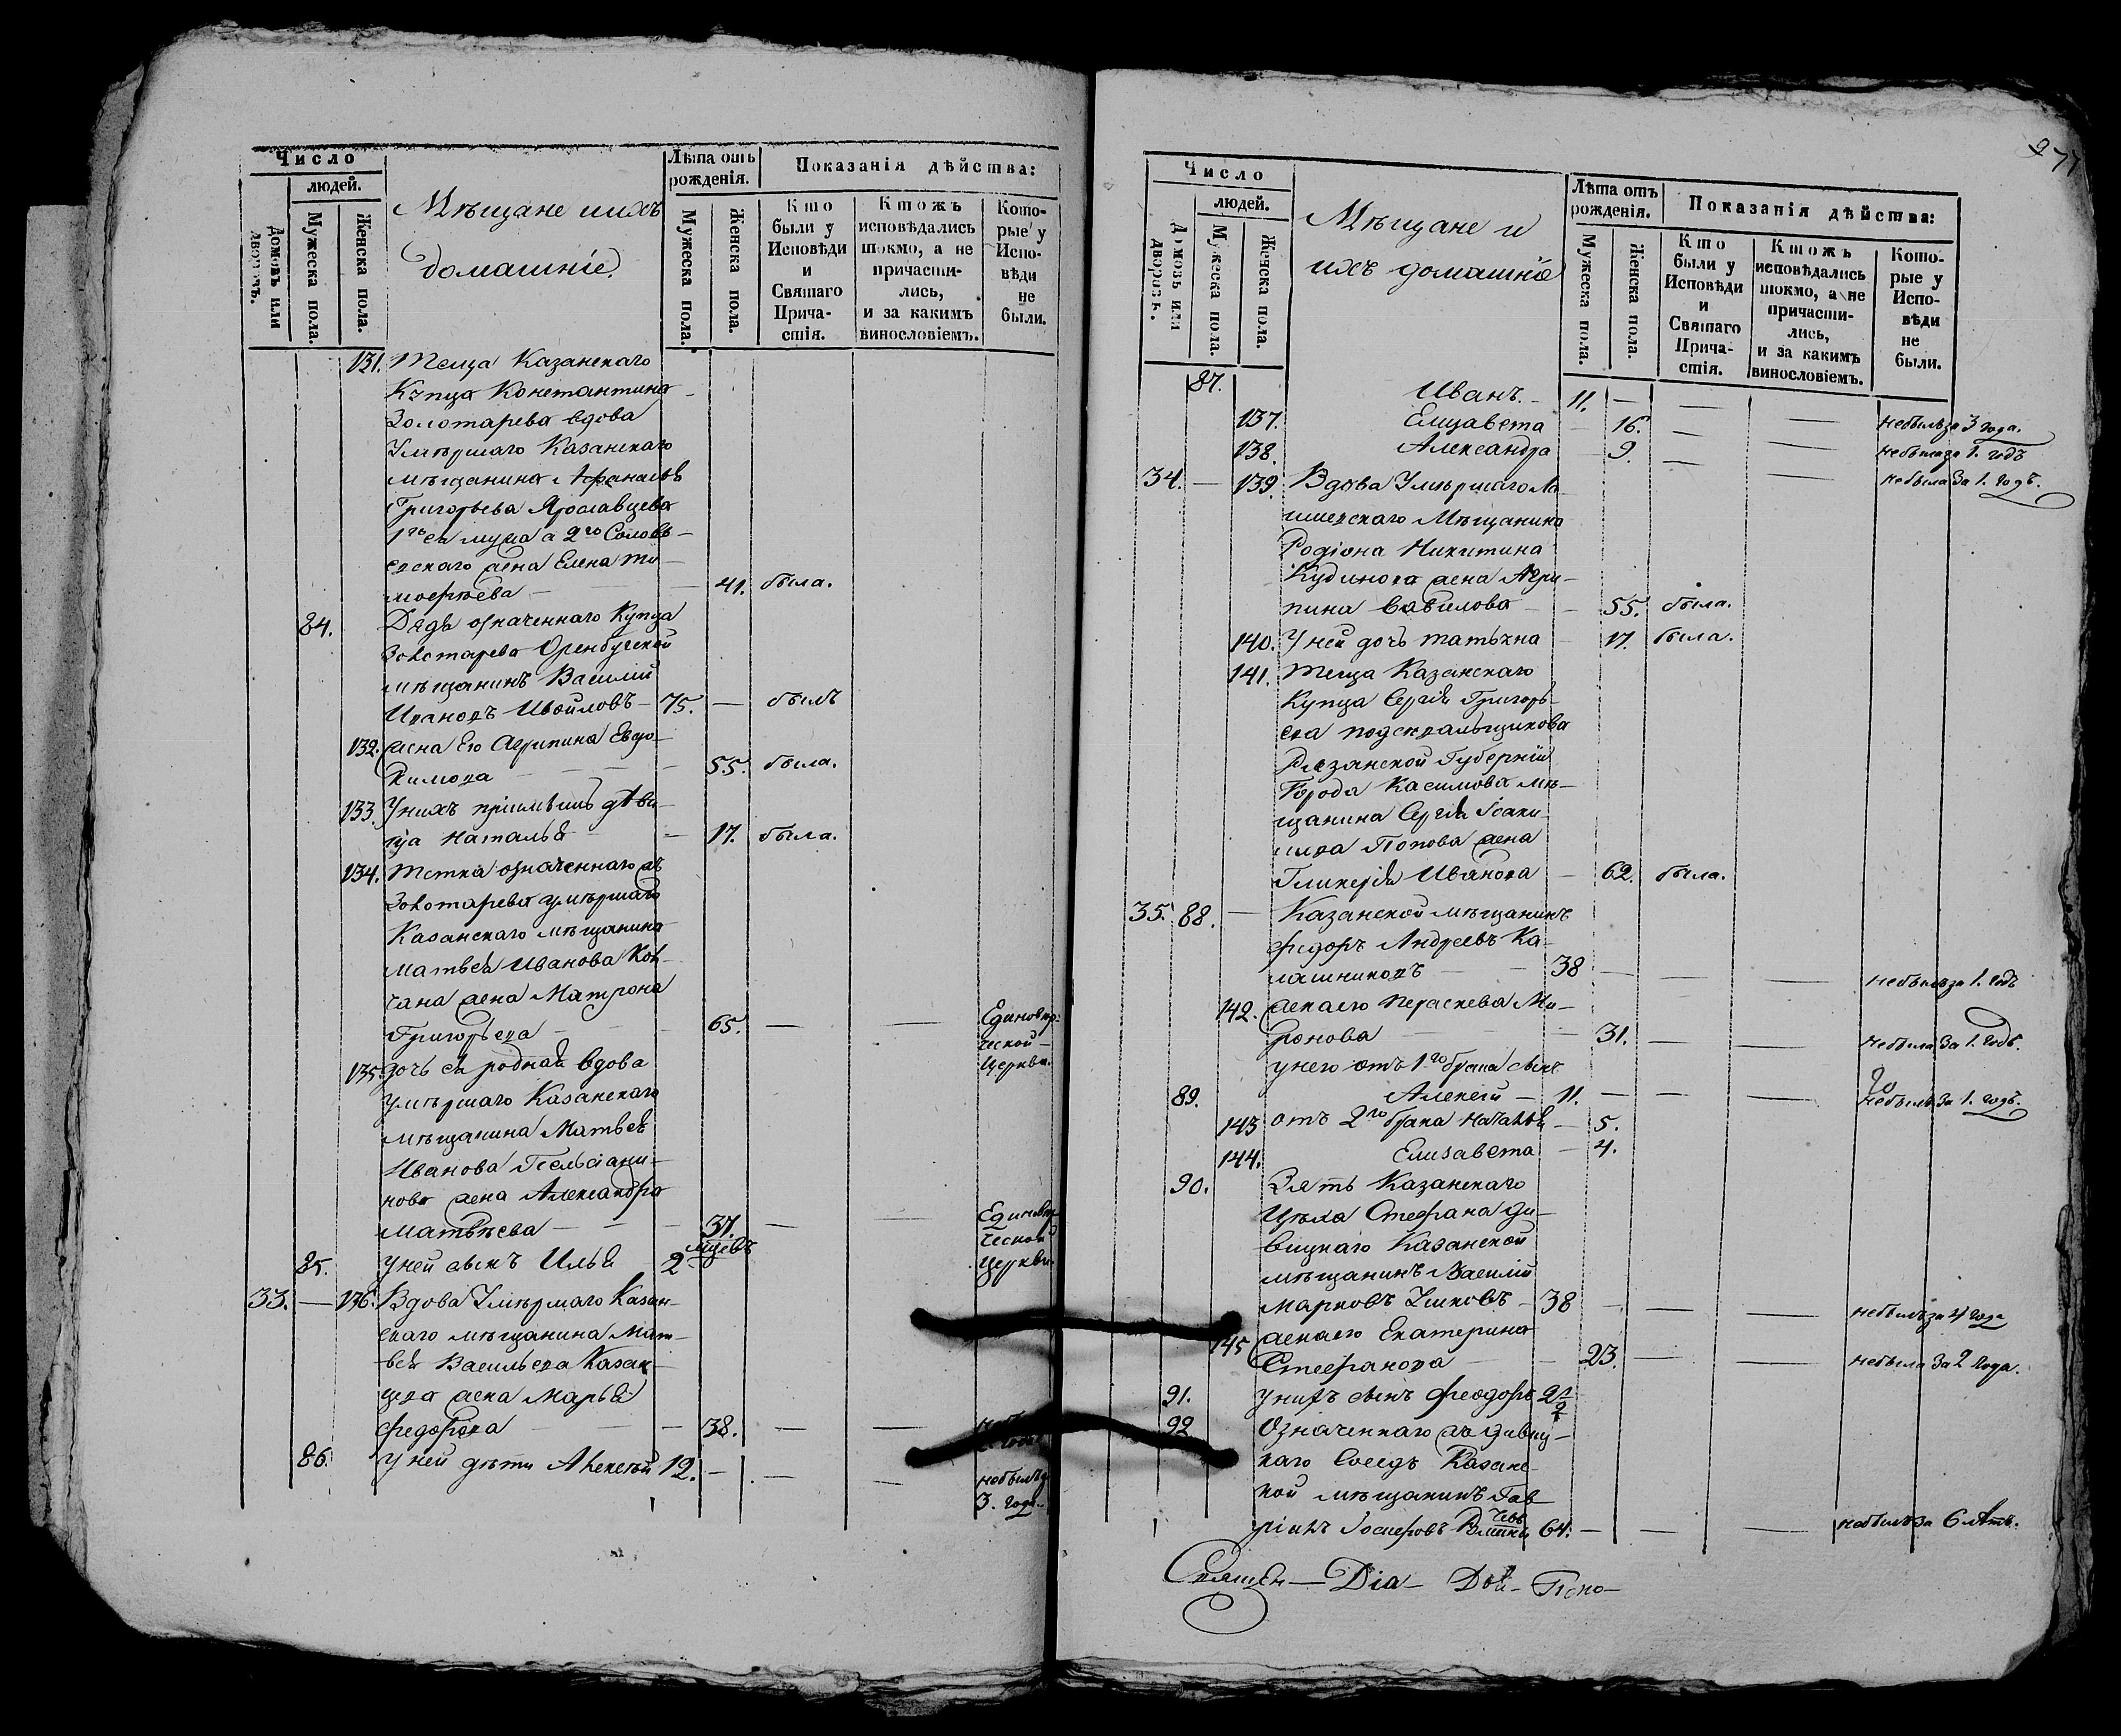 Число
людей.
Домовъ или дворовъ.
Мужеска пола.
Женска пола.
Мѣщане и ихъ
домашніе.
Лѣта отъ рожденія.
Мужеска пола.
Женска пола.
Показанія дѣйства:
Кто были у Исповѣди и Святаго Причастія.
Ктожъ исповѣдались токмо, а не причастились, и за какимъ винословіемъ.
Которые у Исповѣди не были.
131. Теща Казанскаго
Купца Константина
Золотарева вдова
Умѣршаго Казанскаго
мѣщанина Афанасья
Григорьева Ярославцева
1го ея мужа а 2го Соловь-
евскаго жена Елена Ти-
мофѣева — 41. была.
84. Дядя означеннаго Купца
Золотарева Оренбугской
мѣщанинъ Василій
Ивановъ — 75. — былъ
132. жена Его Агрипина Евдо-
кимова — 55. была.
133. У нихъ пріимышъ дѣви-
ца Наталья — 17. была.
134. Тетка означеннаго жъ
Золотарева умѣршаго
Казанскаго мѣщанина
Матвея Иванова
жена Матрона
Григорьева — 65. — — Единовѣр-
ческой
Церкви.
135. дочь ея родная вдова
умѣршаго Казанскаго
мѣщанина Матвея
Иванова
жена Александра
Матвѣева — 37. — — Единовѣр-
ческой
Церкви.
85. У ней сынъ Илья 2 мцевъ
33. — 136. Вдова Умѣршаго Казан-
скаго мѣщанина Мат-
вея Васильева Казан-
цева жена Марья
Федорова — 38. — —
86. У ней дѣти Алексѣй 12. — — — небылъ за
3. года.
277
Число
людей.
Домовъ или дворовъ.
Мужеска пола.
Женска пола.
Мѣщане и
ихъ домашніе
Лѣта отъ рожденія.
Мужеска пола.
Женска пола.
Показанія дѣйства:
Кто были у Исповѣди и Святаго Причастія.
Ктожъ исповѣдались токмо, а не причастились, и за какимъ винословіемъ.
Которые у Исповѣди не были.
87. Иванъ — 11. — — — небылъ за 3 года.
137. Елизавета — 16. — — небыла за 1. годъ
138. Александра — 9. — — небыла за 1. годъ.
34. — 139. Вдова Умѣршаго Ла-
ишевскаго Мѣщанина
Родіона Никитина
Кудинова жена Агри-
пина Вавилова — 55. была.
140. У ней дочь Татьяна — 17. была.
141. Теща Казанскаго
Купца Сергія Григорь-
ева
Рязанской Губерніи
Города Касимова мѣ-
щанина Сергія Іоаки-
мова Попова жена
Гликерія Иванова — 62. была.
35. 88. — Казанской мѣщанинъ
Федоръ Андреевъ Ка-
лашниковъ — 38 — — — небылъ за 1. годъ
142. жена его Параскева Ми-
ронова — 31. — — небыла за 1. годъ.
у него отъ 1го брака сынъ
89. Алексѣй — 11. — — — небылъ за 1. годъ.
143 отъ 2го брака Наталья — 5.
144. Елизавета — 4.
90. Зять Казанскаго
Цѣха Стефана Ди-
вицкаго Казанской
мѣщанинъ Василій
Марковъ Ушковъ — 38 — — — небылъ за 4 года
145 жена его Екатерина
Стефанова — 23. — — небыла за 2 года.
91. У нихъ сынъ Феодоръ 2 1/2
92 Означеннаго жъ Дивиц-
каго Соседъ Казанс-
кой мѣщанинъ Гав-
ріилъ Іосифовъ 64. — — — небылъ за 6 лѣтъ.
Священ— Dіа—